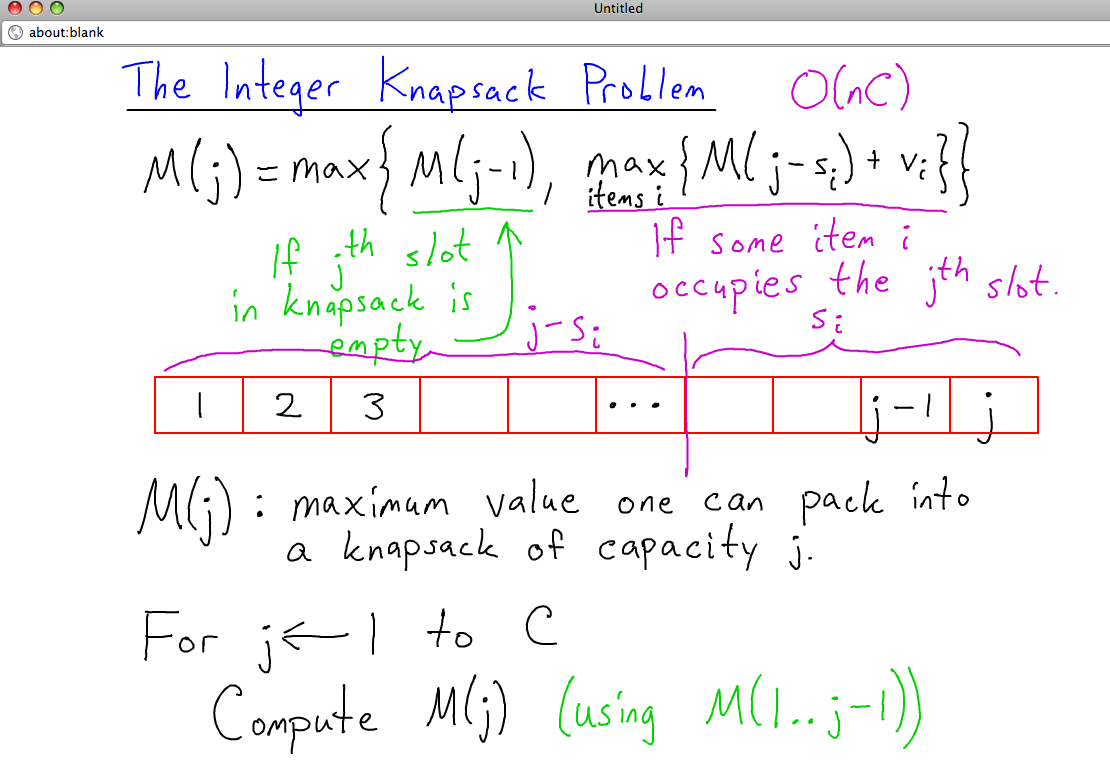 Untitled
about:blank
The Integer Knapsack Problem O(nC)
M(j) = max{ M(j-1), max items i {M(j-si) + vi}}
If jth slot
in knapsack is
empty
If some item i
occupies the jth slot.
j-si
si
1 2 3 ... j-1 j
M(j): maximum value one can pack into
a knapsack of capacity j.
For j← 1 to C
Compute M(j) (using M(1..j-1))